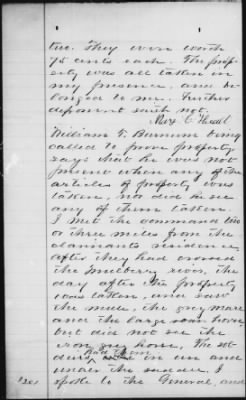 tue. They were worth
75 cents each. The prop-
erty was all taken in
my presence, and be-
longed to me. Further
deponent saith not.
William F. Burnum being
called to prove property
says that he was not
present when any of the
articles of property was
taken, nor did he see
any of them taken.
I met the command two
or three miles from the
claimants residence
after they had crossed
the mulberry river, the
day after the property
was taken, and saw
the mule, the grey mare
and the large roan horse,
but did not see the
iron grey horse. The sol-
diers had them in and
under the saddle. I
spoke to the General, and